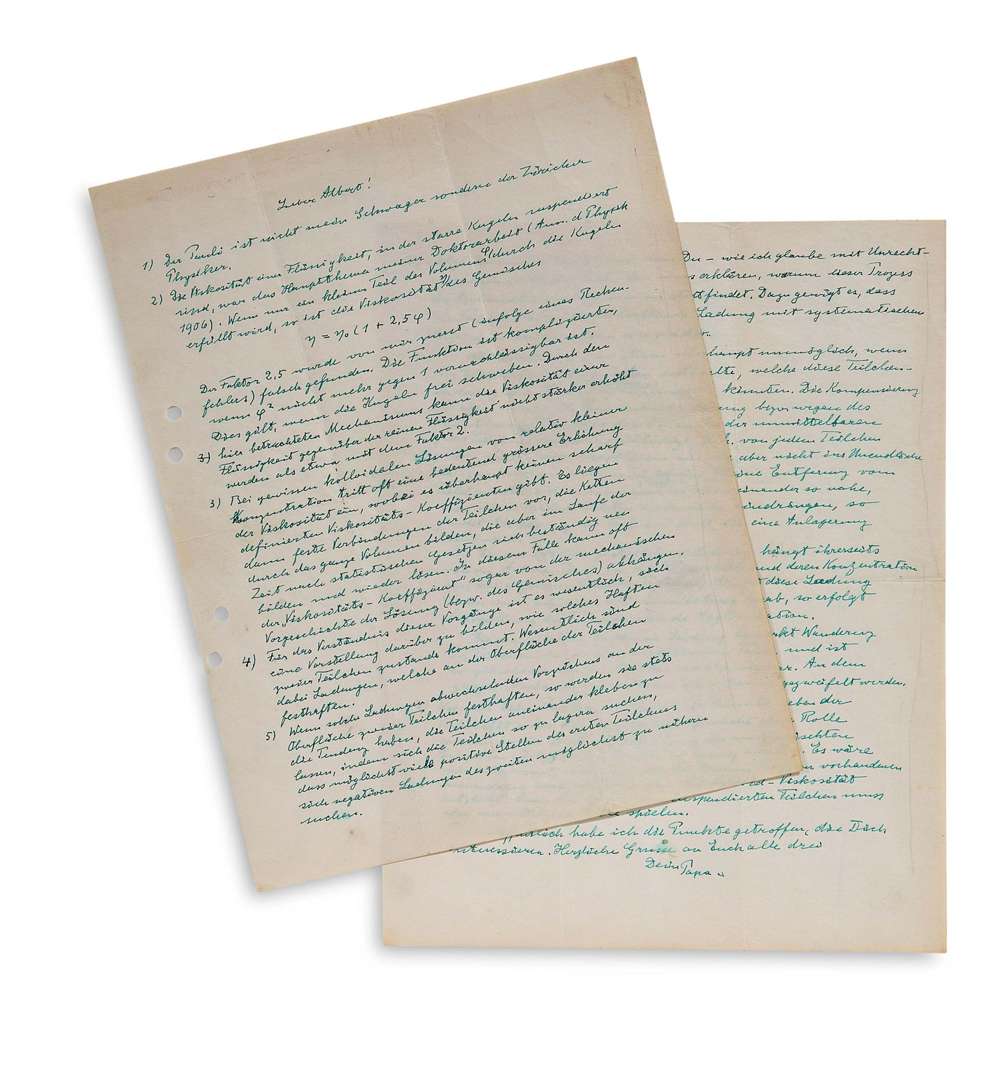 Lieber Albert!
1) Der Pauli ist nicht mein Schwager sondern der Züricher
Physiker.
2) Die Viskosität einer Flüssigkeit, in der starre Kugeln suspendiert
sind, war das Hauptthema meiner Doktorarbeit (Ann. d Physik
1906). Wenn nur ein kleiner Teil des Volumens durch die Kugeln
erfüllt wird, so ist die Viskosität η des Gemisches
η = η₀ (1 + 2,5φ)
Der Faktor 2,5 wurde von mir zuerst (infolge eines Rechen-
fehlers) falsch gefunden. Die Funktion ist komplizierter,
wenn φ² nicht mehr gegen 1 vernachlässigbar ist.
Dies gilt, wenn die Kugeln frei schweben. Durch den
hier betrachteten Mechanismus kann die Viskosität einer
Flüssigkeit gegenüber der reinen Flüssigkeit nicht stärker erhöht
werden als etwa mit dem Faktor 2.
3) Bei gewissen kolloidalen Lösungen von relativ kleiner
Konzentration tritt oft eine bedeutend grössere Erhöhung
der Viskosität ein, wobei es überhaupt keinen scharf
definierten Viskositäts-Koeffizienten gibt. Es liegen
dann feste Verbindungen der Teilchen vor, die Ketten
durch das ganze Volumen bilden, die aber im Laufe der
Zeit nach statistischen Gesetzen sich beständig neu
bilden und wieder lösen. In diesem Falle kann oft
der „Viskositäts-Koeffizient" sogar von der mechanischen
Vorgeschichte der Lösung (bezw. des Gemisches) abhängen.
4) Für das Verständnis dieser Vorgänge ist es wesentlich, sich
eine Vorstellung darüber zu bilden, wie solches Haften
zweier Teilchen zustande kommt. Wesentlich sind
dabei Ladungen, welche an der Oberfläche der Teilchen
festhaften.
5) Wenn solche Ladungen abwechselnden Vorzeichens an der
Oberfläche zweier Teilchen festhaften, so werden sie stets
die Tendenz haben, die Teilchen aneinander kleben zu
lassen, indem sich die Teilchen so zu lagern suchen,
dass möglichst viele positive Stellen des ersten Teilchens
sich negativen Ladungen des zweiten möglichst zu nähern
suchen.
Du – wie ich glaube mit Unrecht –
erklären, warum dieser Prozess
stattfindet. Dazu genügt es, dass
Ladung mit systematischen
überhaupt unmöglich, wenn
welche diese Teilchen-
könnten. Die Kompensierung
bezw. wegen des
der unmittelbaren
von jedem Teilchen
aber nicht ins Unendliche
eine Entfernung vom
einander so nahe,
so
eine Anlagerung
hängt ihrerseits
und deren Konzentration
diese Ladung
ab, so erfolgt
Wanderung
und ist
An dem
gezweifelt werden.
der
Rolle
Es wäre
vorhandenen
Viskosität
suspendierten Teilchen muss
spielen.
habe ich die Punkte getroffen, die Dich
interessieren. Herzliche Grüsse an Euch alle drei
Dein Papa.